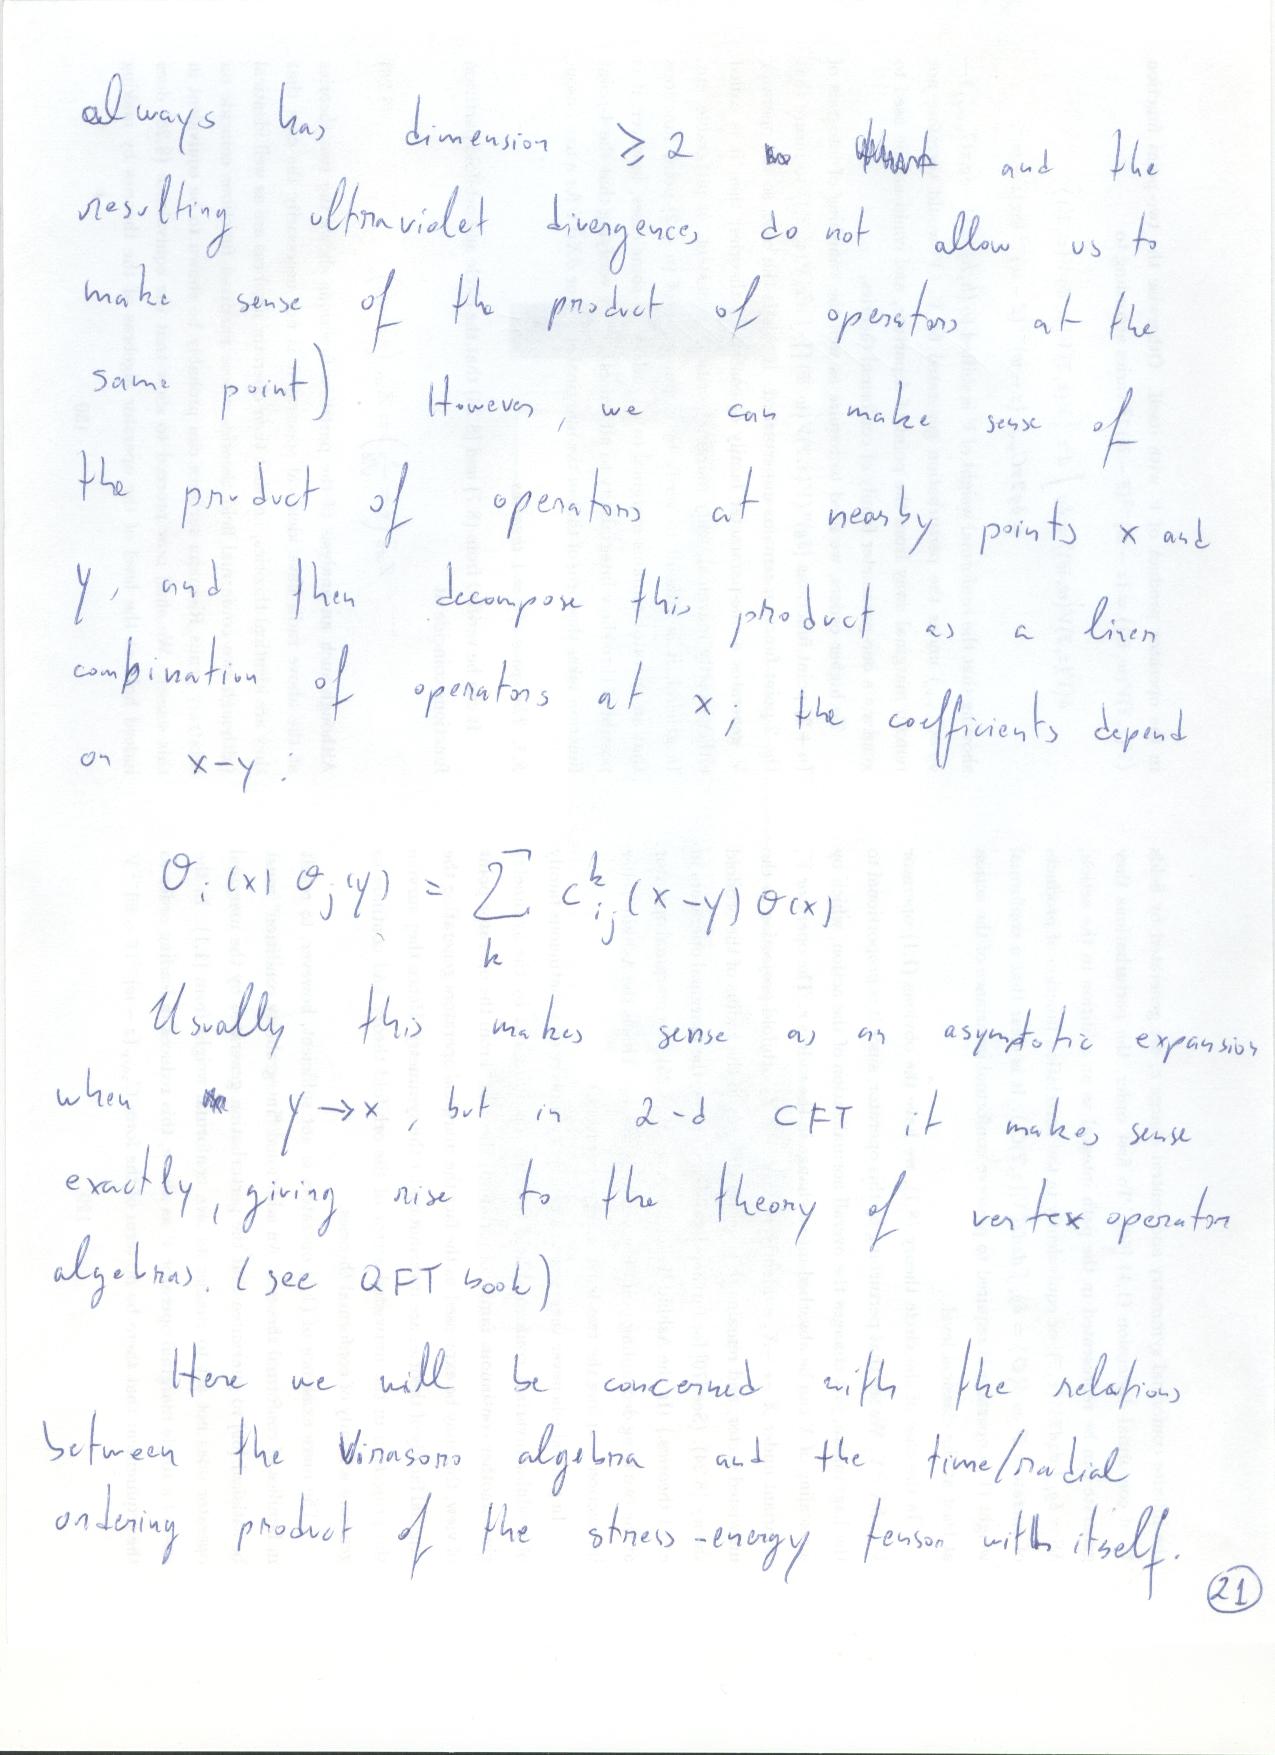 always has dimension ≥ 2 and the
resulting ultraviolet divergences do not allow us to
make sense of the product of operators at the
same point) However, we can make sense of
the product of operators at nearby points x and
y, and then decompose this product as a linear
combination of operators at x; the coefficients depend
on x-y:
O_i(x) O_j(y) = ∑_k c^k_ij (x-y) O(x)
Usually this makes sense as an asymptotic expansion
when y→x, but in 2-d CFT it makes sense
exactly, giving rise to the theory of vertex operator
algebras. (see QFT book)
Here we will be concerned with the relations
between the Virasoro algebra and the time/radial
ordering product of the stress-energy tensor with itself.
21